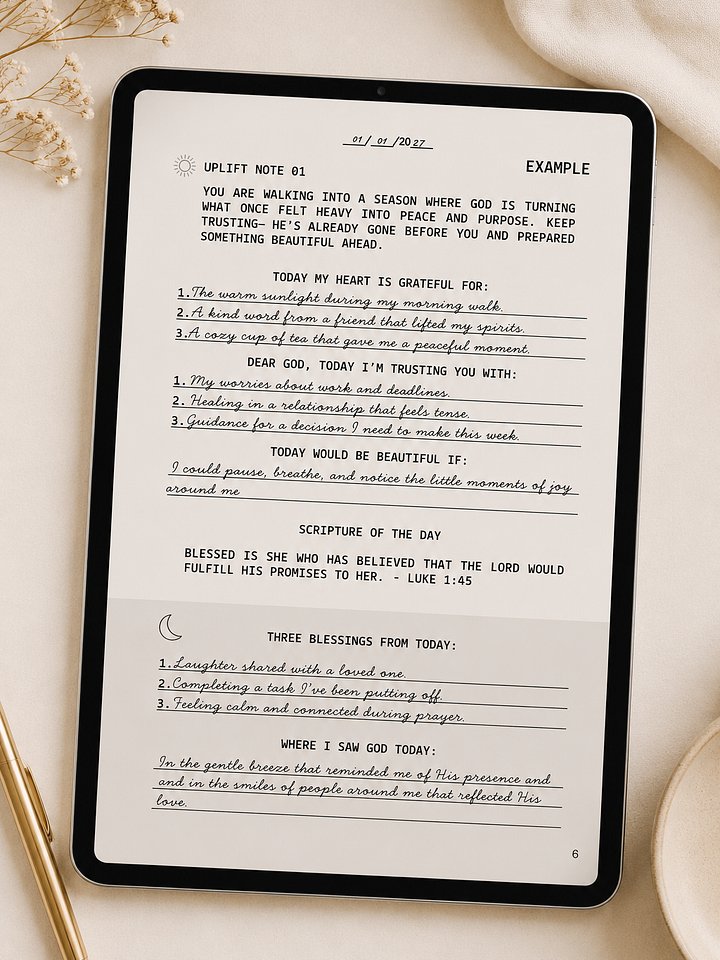 01 / 01 /2027
UPLIFT NOTE 01
EXAMPLE
YOU ARE WALKING INTO A SEASON WHERE GOD IS TURNING
WHAT ONCE FELT HEAVY INTO PEACE AND PURPOSE. KEEP
TRUSTING— HE'S ALREADY GONE BEFORE YOU AND PREPARED
SOMETHING BEAUTIFUL AHEAD.
TODAY MY HEART IS GRATEFUL FOR:
1. The warm sunlight during my morning walk.
2. A kind word from a friend that lifted my spirits.
3. A cozy cup of tea that gave me a peaceful moment.
DEAR GOD, TODAY I'M TRUSTING YOU WITH:
1. My worries about work and deadlines.
2. Healing in a relationship that feels tense.
3. Guidance for a decision I need to make this week.
TODAY WOULD BE BEAUTIFUL IF:
I could pause, breathe, and notice the little moments of joy
around me
SCRIPTURE OF THE DAY
BLESSED IS SHE WHO HAS BELIEVED THAT THE LORD WOULD
FULFILL HIS PROMISES TO HER. - LUKE 1:45
THREE BLESSINGS FROM TODAY:
1. Laughter shared with a loved one.
2. Completing a task I've been putting off.
3. Feeling calm and connected during prayer.
WHERE I SAW GOD TODAY:
In the gentle breeze that reminded me of His presence and
and in the smiles of people around me that reflected His
love.
6